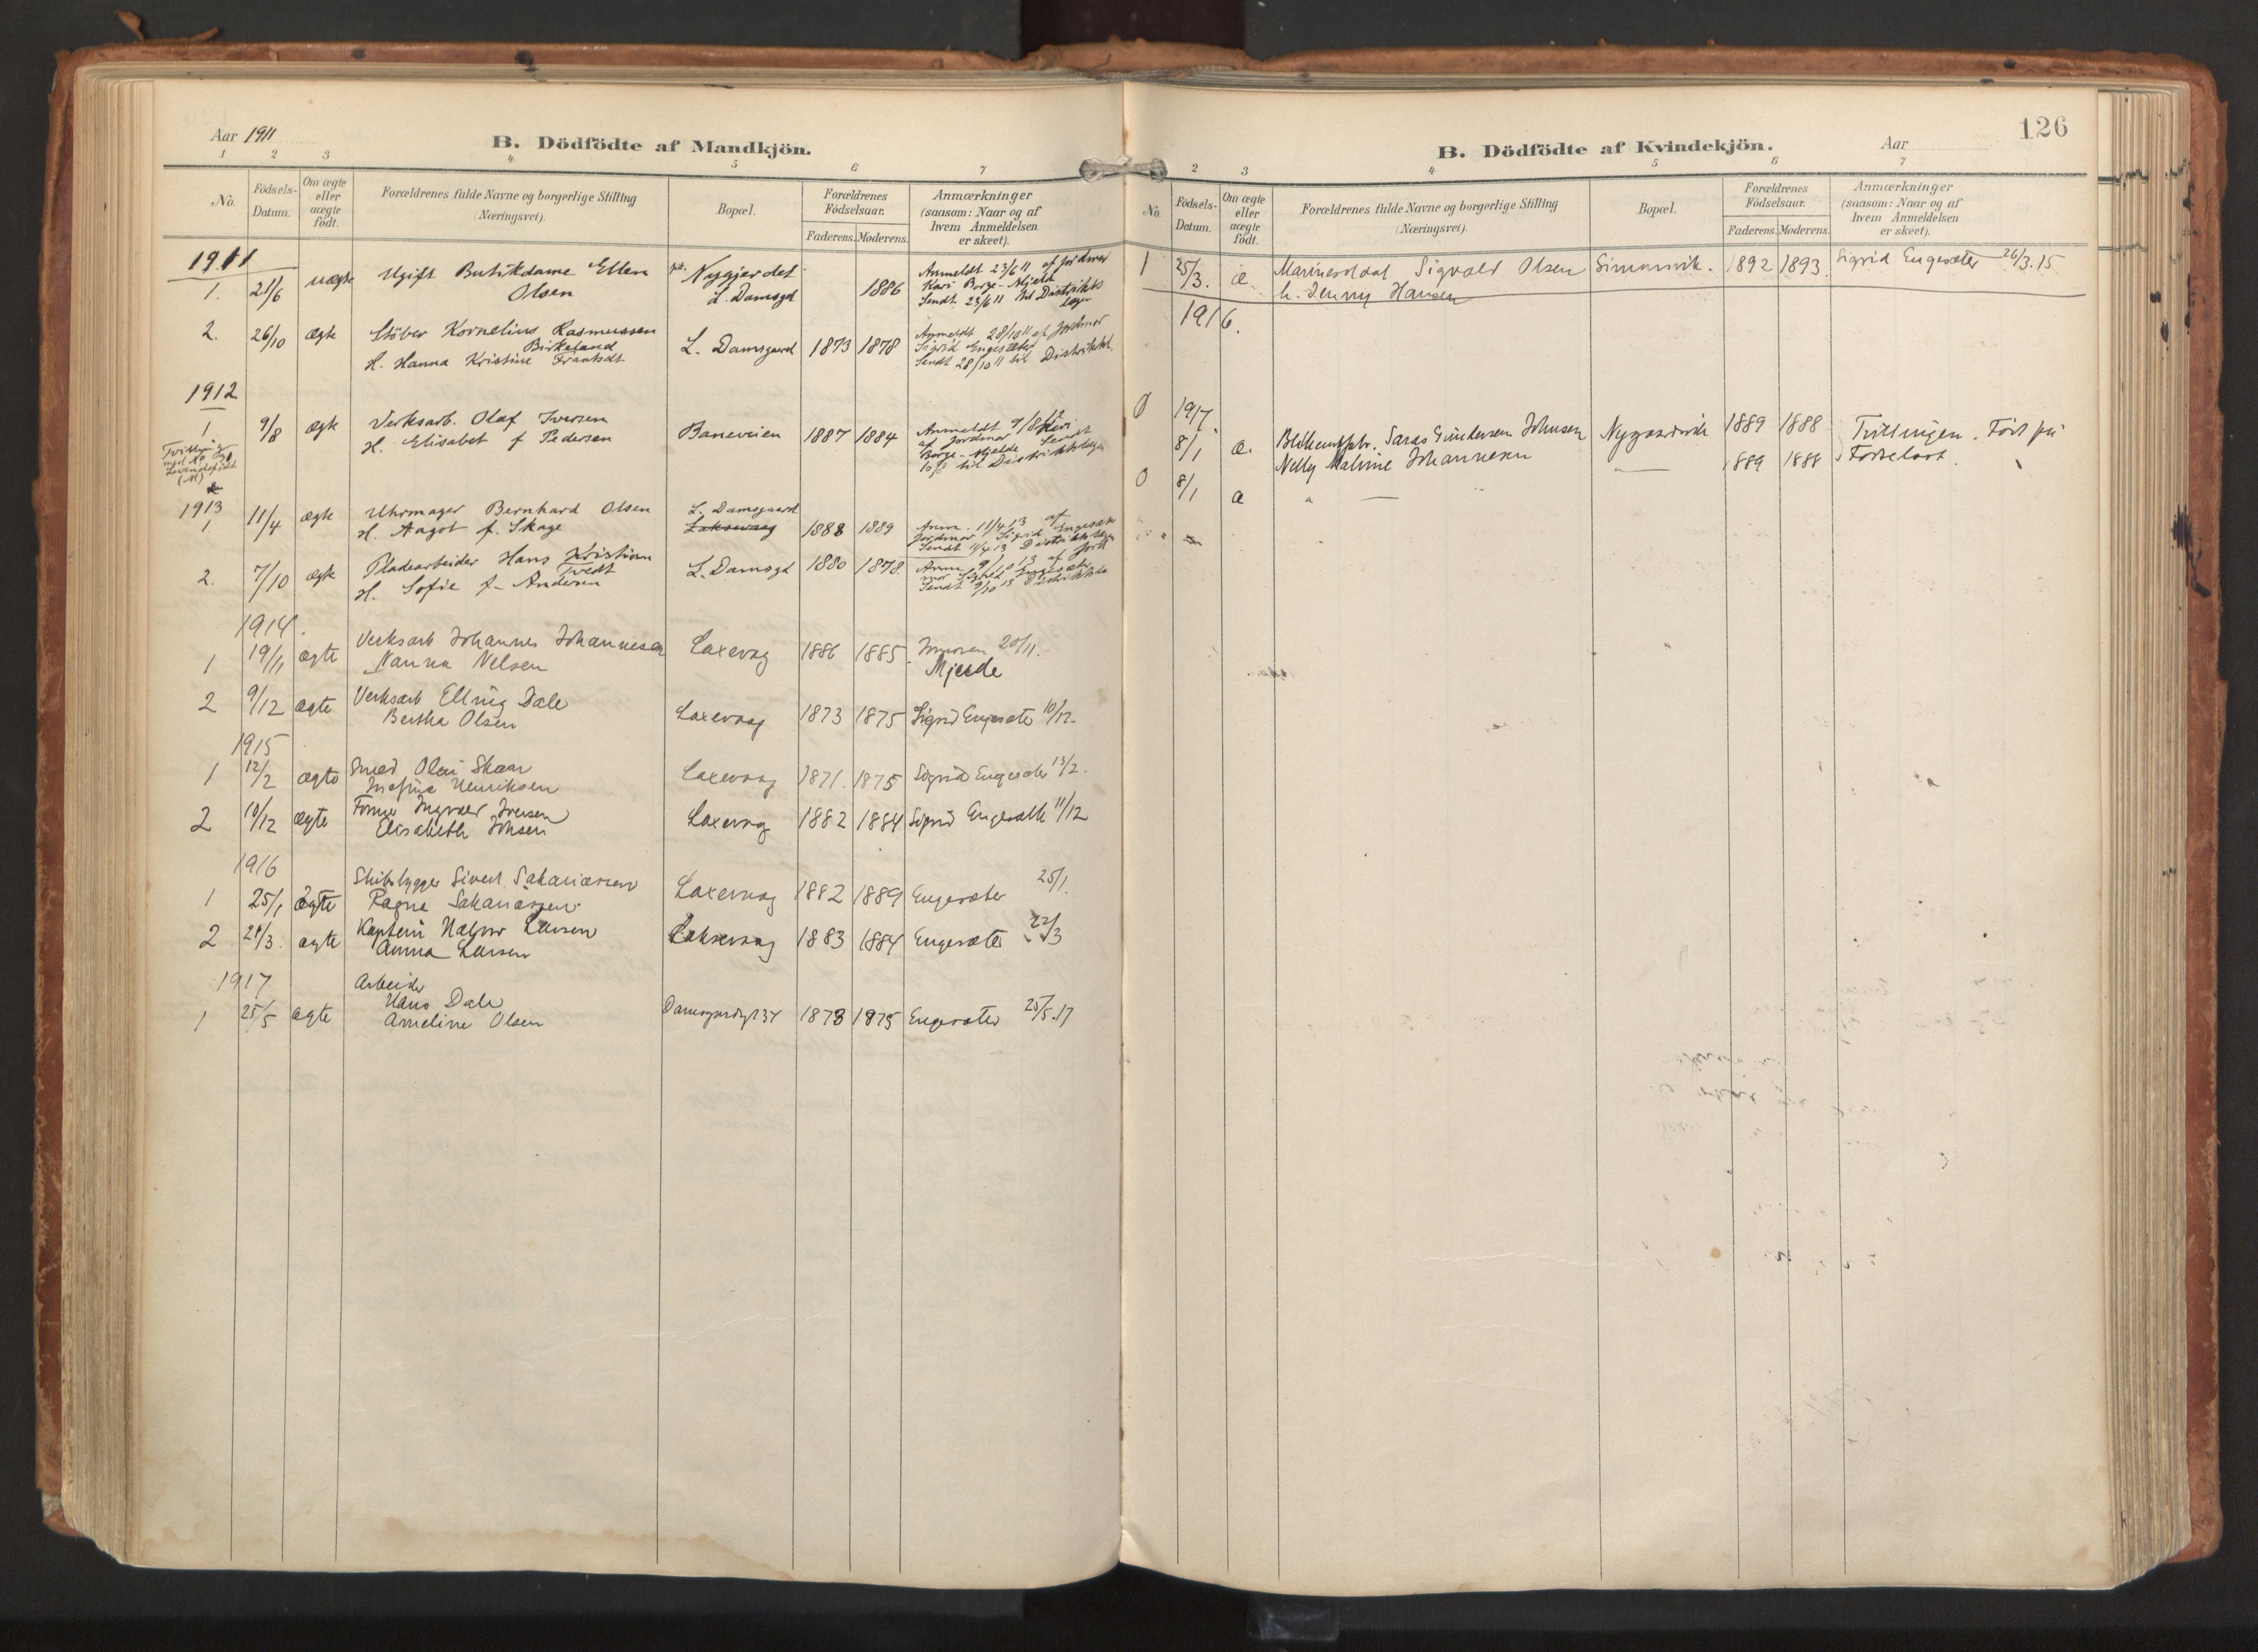 Aar 1911
B. Dödfödte af Mandkjön.
1 2 3 4 5 6 7
No.
Födsels-Datum.
Om ægte eller uægte födt.
Forældrenes fulde Navne og borgerlige Stilling (Næringsvei).
Bopæl.
Forældrenes Födselsaar.
Faderens. Moderens.
Anmærkninger (saasom: Naar og af hvem Anmeldelsen er skeet).
1911
1. 21/6 uægte Ugift Butikdame Ellen Nygjerdet 1886 Anmeldt 23/6 11 af jordmor
Olsen L. Damsgd Kari Borge-Mjelde
Sendt 23/6 11 til Distriktslægen
2. 26/10 ægte Stöber Kornelius Rasmussen L. Damsgaard 1873 1878 Anmeldt 28/10 11 af jordmor
Birkeland Sigrid Engesæter
H. Hanna Kristine Frantsdt Sendt 28/10 11 til Distriktsl.
1912
1. 9/8 ægte Verksarb. Olaf Iversen Baneveien 1887 1884 Anmeldt 9/8 12
H. Elisabet f Pedersen af jordmor Kari
Borge-Mjelde Sendt
10/8 til Distriktslægen
Tvilling
med No
Levendefödte
(M)
1913
1. 11/4 ægte Uhrmager Bernhard Olsen L. Damsgaard
H. Aagot f. Skage Laksevaag 1888 1889 Anm. 11/4 13 af
jordmor Sigrid Engesæt
Sendt 11/4 13 Distriktslægen
2. 7/10 ægte Pladearbeider Hans Kristian L. Damsgd 1880 1878. Anm 9/10 13 af jord
Tvedt mor Sigrid Engesæter
H. Sofie f. Andersen Sendt 9/10 13 Distriktslæ
1914.
1 19/11 ægte Verksarb Johannes Johannesen Laxevag 1886 1885 20/11.
Nanna Nelsen Mjelde
2 9/12 ægte Verksarb Elling Dale Laxevaag 1873 1875 Sigrid Engesæter 10/12.
Bertha Olsen
1915
1 12/2 ægte Smed Olai Skaar Laxevaag 1871. 1875 Sigrid Engesæter 13/2.
Josefine Henriksen
2 10/12 ægte Former Ingvald Iversen Laxevag 1882 1884 Sigrid Engesæth 11/12
Elisabeth Johsen
1916
1 25/1 ægte Skibsbygger Sivert Sakariassen Laxevaag 1882 1889 Engesæter 25/1.
Ragna Sakariassen
2 21/3. ægte Kaptein Halvor Larsen Laksevaag 1883 1884 Engesæter 22/3
Anna Larsen
1917
Arbeider
1 25/5 ægte Hans Dale Damsgardsgt 34 1873 1875 Engesæter 25/5.17
Arneline Olsen
126
B. Dödfödte af Kvindekjön.
Aar
2 3 4 5 6 7
No.
Födsels-Datum.
Om ægte eller uægte födt.
Forældrenes fulde Navne og borgerlige Stilling (Næringsvei).
Bopæl.
Forældrenes Födselsaar.
Faderens. Moderens.
Anmærkninger (saasom: Naar og af hvem Anmeldelsen er skeet).
1 25/3. æ. Marinesoldat Sigvald Olsen Simonsvik. 1892 1893. Sigrid Engesæter 26/3.15.
h. Jenny Hansen
1916.
0 1917.
8/1 æ. Gundersen Johnsen 1889 1888 Tvillinger. Fört på
Nelly Malvine Johannesen — 1889 1888
0 8/1 æ " — "